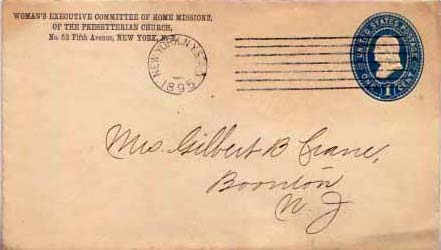 WOMAN'S EXECUTIVE COMMITTEE OF HOME MISSIONS,
OF THE PRESBYTERIAN CHURCH,
No. 53 Fifth Avenue, NEW YORK, N.Y.
NEW YORK, N.Y.
1895
UNITED STATES POSTAGE
ONE 1 CENT
Mrs. Gilbert B Crane,
Boonton
N. J